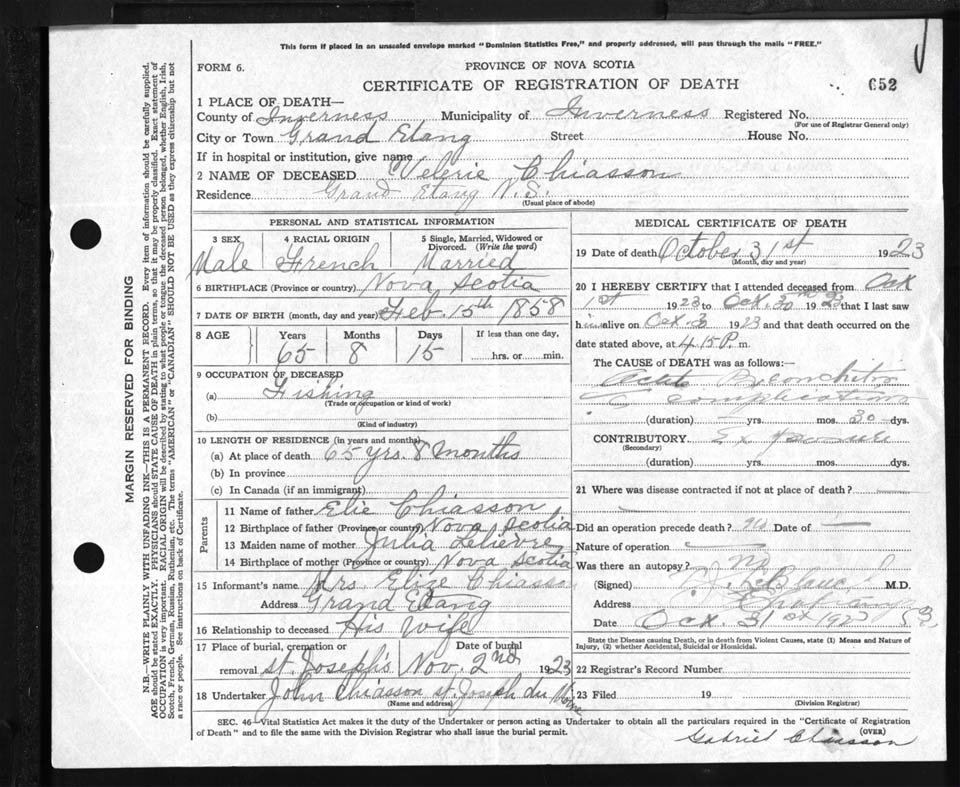 This form if placed in an unsealed envelope marked "Dominion Statistics Free," and properly addressed, will pass through the mails "FREE."
FORM 6.
PROVINCE OF NOVA SCOTIA
CERTIFICATE OF REGISTRATION OF DEATH
652
1 PLACE OF DEATH—
County of Inverness Municipality of Inverness Registered No.
(For use of Registrar General only)
City or Town Grand Etang Street House No.
If in hospital or institution, give name
2 NAME OF DECEASED Velerie Chiasson
Residence Grand Etang N.S.
(Usual place of abode)
PERSONAL AND STATISTICAL INFORMATION
3 SEX 4 RACIAL ORIGIN 5 Single, Married, Widowed or Divorced. (Write the word)
Male French Married
6 BIRTHPLACE (Province or country) Nova Scotia
7 DATE OF BIRTH (month, day and year) Feb 15th 1858
8 AGE Years Months Days If less than one day,
65 8 15 hrs. or min.
9 OCCUPATION OF DECEASED
(a) Fishing
(Trade or occupation or kind of work)
(b)
(Kind of industry)
10 LENGTH OF RESIDENCE (in years and months)
(a) At place of death 65 yrs. 8 months
(b) In province
(c) In Canada (if an immigrant)
Parents
11 Name of father Elie Chiasson
12 Birthplace of father (Province or country) Nova Scotia
13 Maiden name of mother Julia Lelievre
14 Birthplace of mother (Province or country) Nova Scotia
15 Informant's name Mrs. Elize Chiasson
Address Grand Etang
16 Relationship to deceased His Wife
17 Place of burial, cremation or Date of burial
removal St. Joseph's Nov. 2nd 1923
18 Undertaker John Chiasson St. Joseph du Moine
(Name and address)
MEDICAL CERTIFICATE OF DEATH
19 Date of death October 31st 1923
(Month, day and year)
20 I HEREBY CERTIFY that I attended deceased from Oct
1st 1923 to Oct. 30th 1923 that I last saw
him alive on Oct 30 1923 and that death occurred on the
date stated above, at 4.15 P. m.
The CAUSE of DEATH was as follows:—
Acute Bronchitis
Complications
(duration) yrs. mos. 30 dys.
CONTRIBUTORY Exposure
(Secondary)
(duration) yrs. mos. dys.
21 Where was disease contracted if not at place of death?
Did an operation precede death? no Date of
Nature of operation
Was there an autopsy? no
(Signed) M.D.
Address
Date Oct. 31st 1923
State the Disease causing Death, or in death from Violent Causes, state (1) Means and Nature of
Injury, (2) whether Accidental, Suicidal or Homicidal.
22 Registrar's Record Number
23 Filed 19
(Division Registrar)
SEC. 46—Vital Statistics Act makes it the duty of the Undertaker or person acting as Undertaker to obtain all the particulars required in the "Certificate of Registration
of Death" and to file the same with the Division Registrar who shall issue the burial permit.
(OVER)
Gabriel Chiasson
MARGIN RESERVED FOR BINDING
N.B.—WRITE PLAINLY WITH UNFADING INK—THIS IS A PERMANENT RECORD. Every item of information should be carefully supplied.
AGE should be stated EXACTLY. PHYSICIANS should STATE CAUSE OF DEATH in plain terms, so that it may be properly classified. Exact statement of
OCCUPATION is very important. RACIAL ORIGIN will be described by stating to what people or tongue the deceased person belonged, whether English, Irish,
Scotch, French, German, Russian, Ruthenian, etc. The terms "AMERICAN" or "CANADIAN" SHOULD NOT BE USED as they express citizenship but not
a race or people. See instructions on back of Certificate.